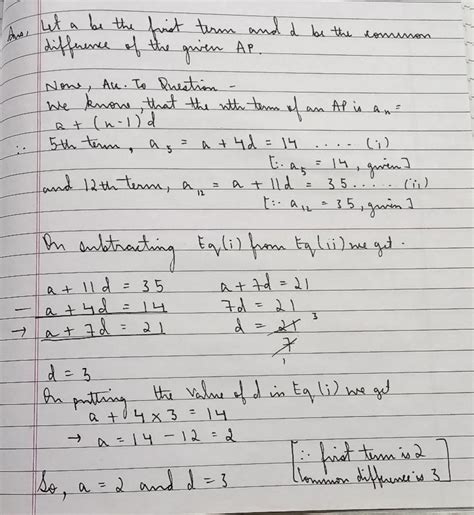 Ans. Let a be the first term and d be the common
difference of the given AP.
Now, Acc. To Question -
We know that the nth term of an AP is an =
a + (n-1)d
∴ 5th term, a5 = a + 4d = 14 .... (i)
[∵ a5 = 14, given]
and 12th term, a12 = a + 11d = 35.... (ii)
[∵ a12 = 35, given]
On subtracting Eq(i) from Eq(ii) we get.
a + 11d = 35 a + 7d = 21
- a + 4d = 14 7d = 21
→ a + 7d = 21 d = 21/7 3 1
d = 3
On putting the value of d in Eq(i) we get
a + 4 × 3 = 14
→ a = 14 - 12 = 2
So, a = 2 and d = 3 [∵ first term is 2
Common difference is 3]